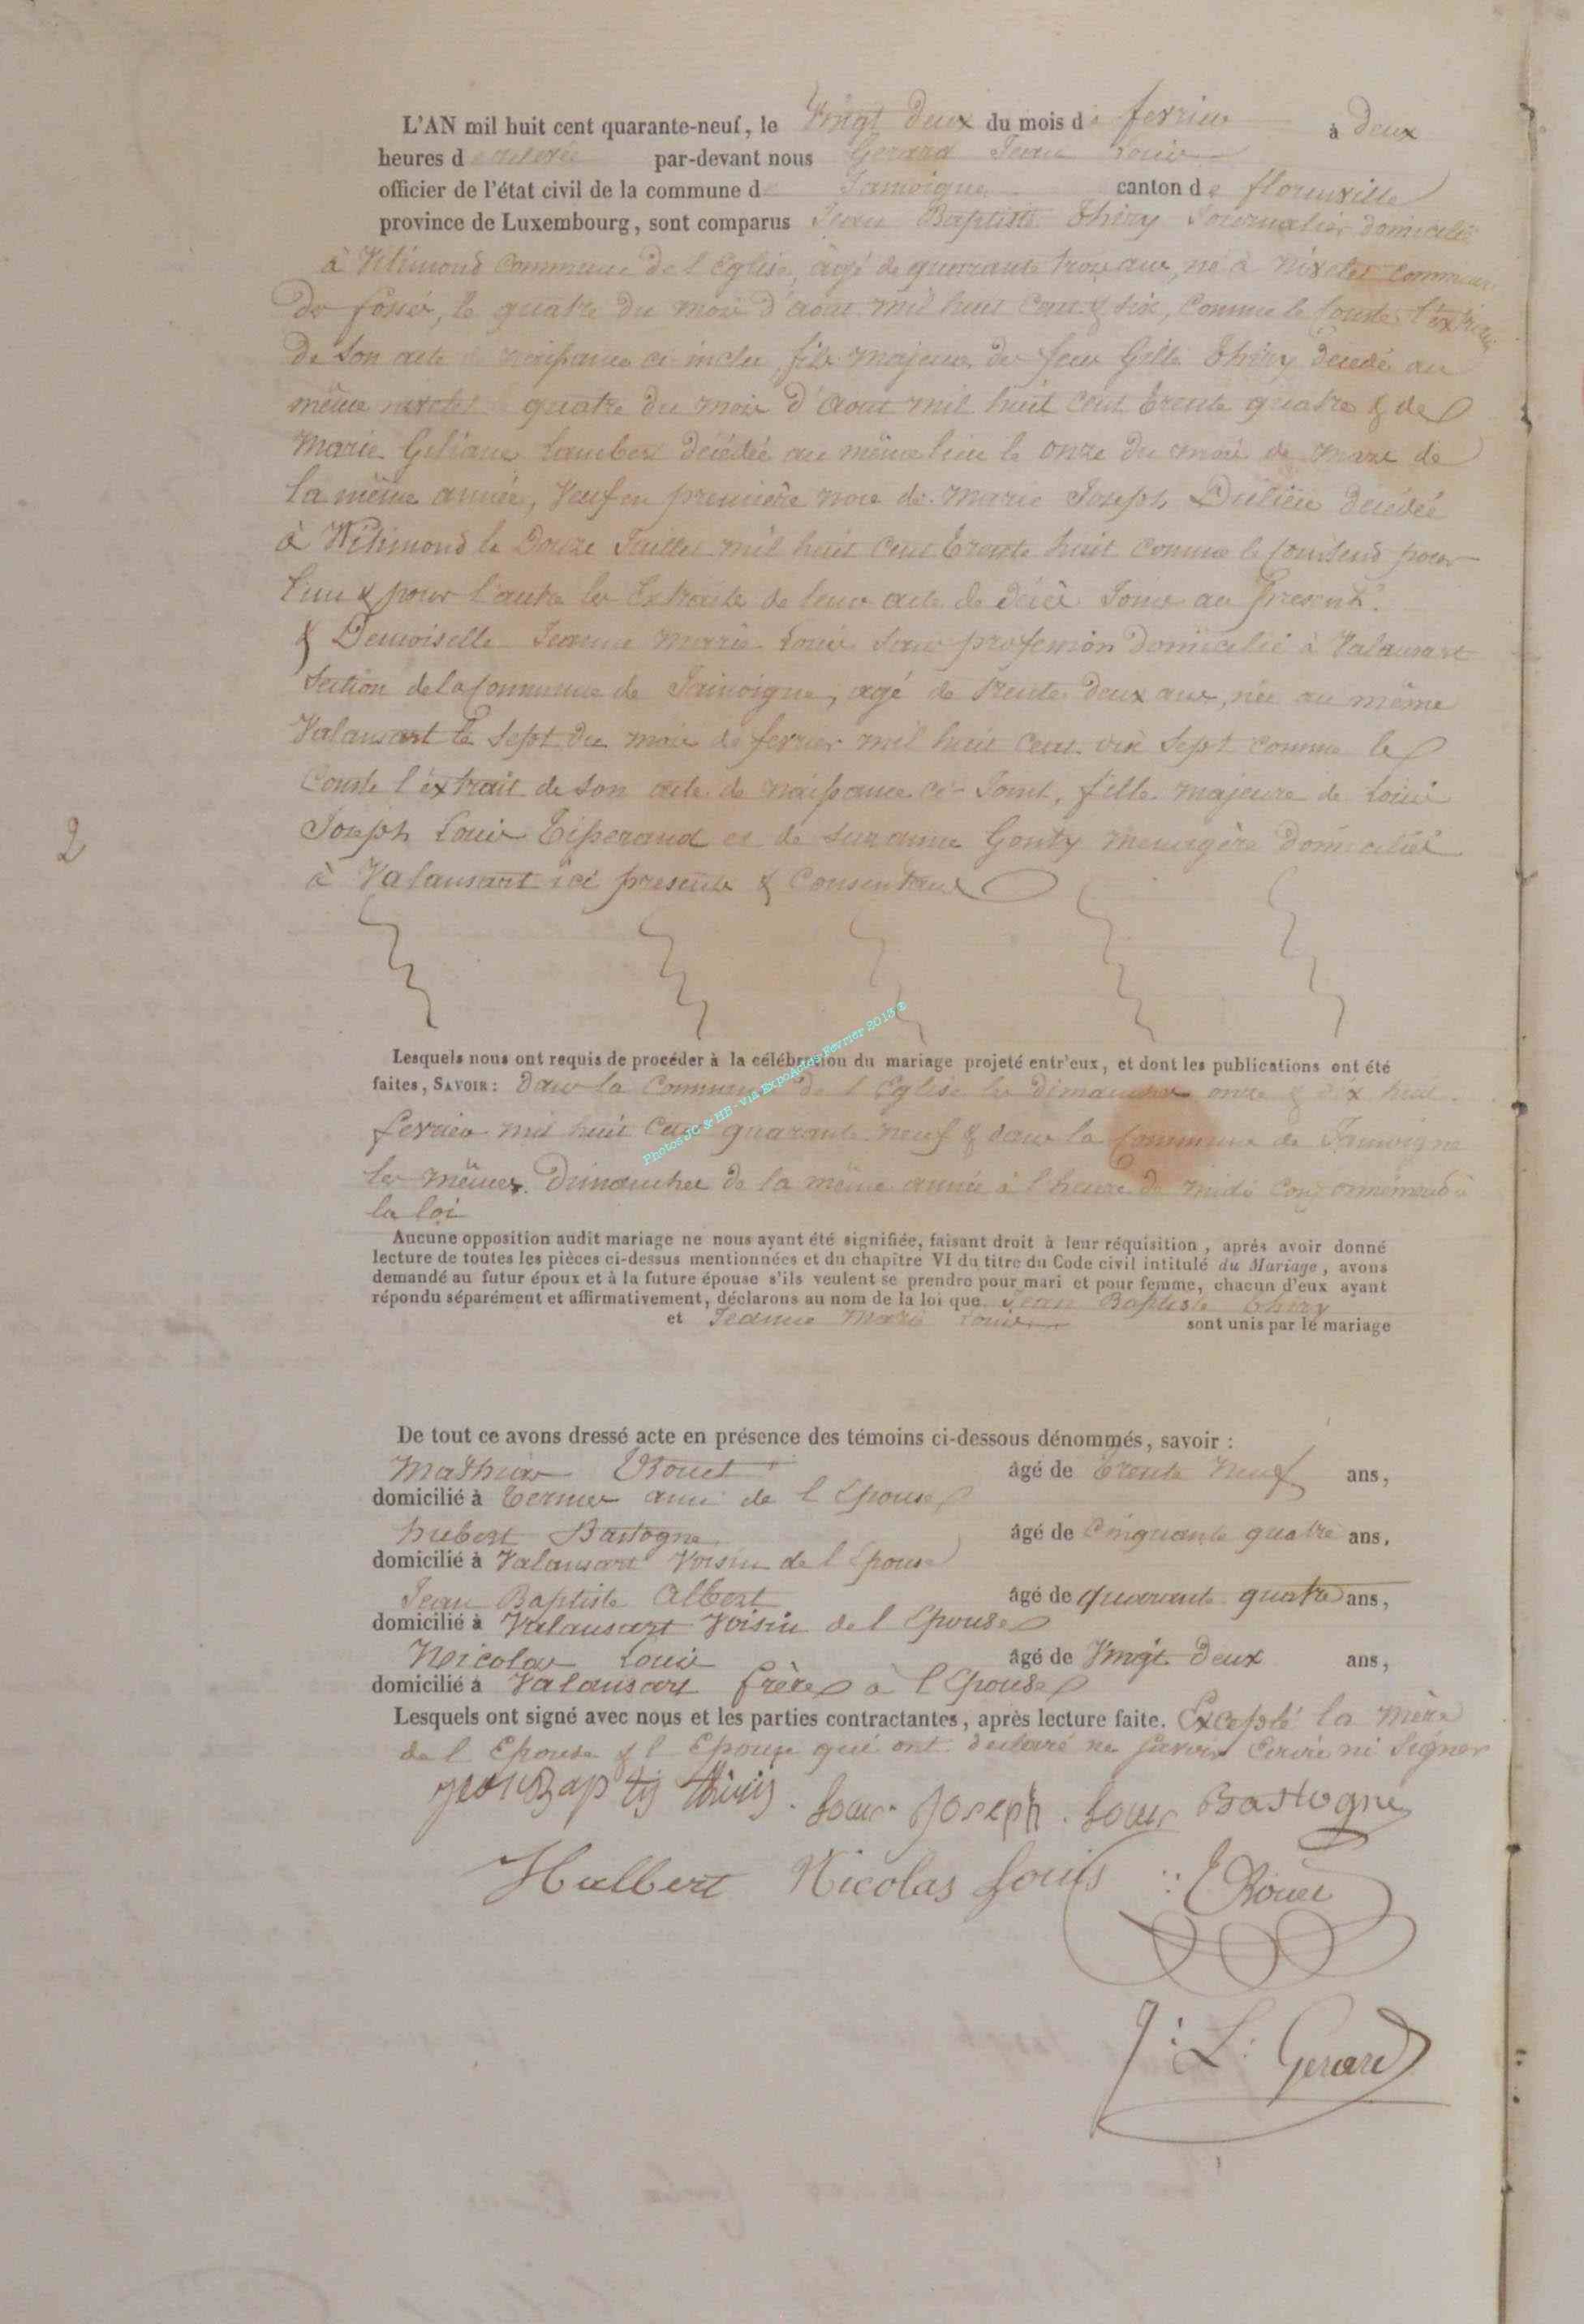 L'AN mil huit cent quarante-neuf, le Vingt Deux du mois de fevrier à Deux
heures de relevée par-devant nous Gerard Jean Louis
officier de l'état civil de la commune de Jamoigne canton de florenville
province de Luxembourg, sont comparus Jean Baptiste Thiry Journalier domicilié
à Villimond Commune de l Eglise, agé de quarante trois ans, né à nixelet commune
de fossé, le quatre du mois d'aout mil huit cent & six, comme le Conste l'extrait
de son acte de naissance ci inclu, fils majeur de feu Gille Thiry décédé au
même nixelet quatre du mois d'aout mil huit cent trente quatre & de
Marie Lambert décédée au même lieu le onze du mois de mars de
la même année, Veuf en première noce de Marie Joseph décédée
à Wilimond le Douze Juillet mil huit cent trente huit comme le pour
l'un & pour l'autre les Extraits de leur acte de décès Joins au Present.
& Demoiselle Jeanne Marie Louis Sans profession Domicilié à Valansart
Section de la Commune de Jamoigne, agé de trente Deux ans, née au même
Valansart le Sept du mois de fevrier mil huit cent dix Sept comme le
Conste l'extrait de son acte de naissance ci-Joint, fille majeure de Louis
Joseph Louis Tisserand et de Suzanne Gonty Menagère Domiciliés
à Valansart ici presents & Consentans
2
Lesquels nous ont requis de procéder à la célébration du mariage projeté entr'eux, et dont les publications ont été
faites, SAVOIR: Dans la Commune de l Eglise les dimanches onze & dix huit
fevrier mil huit Cent quarante neuf & dans la Commune de Jamoigne
les mêmes Dimanches de la même année à l'heure de midi conformément à
la loi
Photos JC & HB - via ExpoActes Fevrier 2013 ©
Aucune opposition audit mariage ne nous ayant été signifiée, faisant droit à leur réquisition, aprés avoir donné
lecture de toutes les pièces ci-dessus mentionnées et du chapitre VI du titre du Code civil intitulé du Mariage, avons
demandé au futur époux et à la future épouse s'ils veulent se prendre pour mari et pour femme, chacun d'eux ayant
répondu séparément et affirmativement, déclarons au nom de la loi que Jean Baptiste Thiry
et Jeanne Marie Louis sont unis par le mariage
De tout ce avons dressé acte en présence des témoins ci-dessous dénommés, savoir :
Mathias Rouet âgé de trente Neuf ans,
domicilié à Termes ami de l Epouse
hubert Bastogne âgé de Cinquante quatre ans,
domicilié à Valansart Voisin de l Epouse
Jean Baptiste Albert âgé de quarante quatre ans,
domicilié à Valansart Voisin de l Epouse
Nicolas Louis âgé de Vingt Deux ans,
domicilié à Valansart frère à l Epouse
Lesquels ont signé avec nous et les parties contractantes, après lecture faite. Excepté la mère
de l Epouse & l Epouse qui ont declaré ne savoir Ecrire ni Signer
Louis Joseph Louis Bastogne
Nicolas Louis Rouet
J: L: Gerard